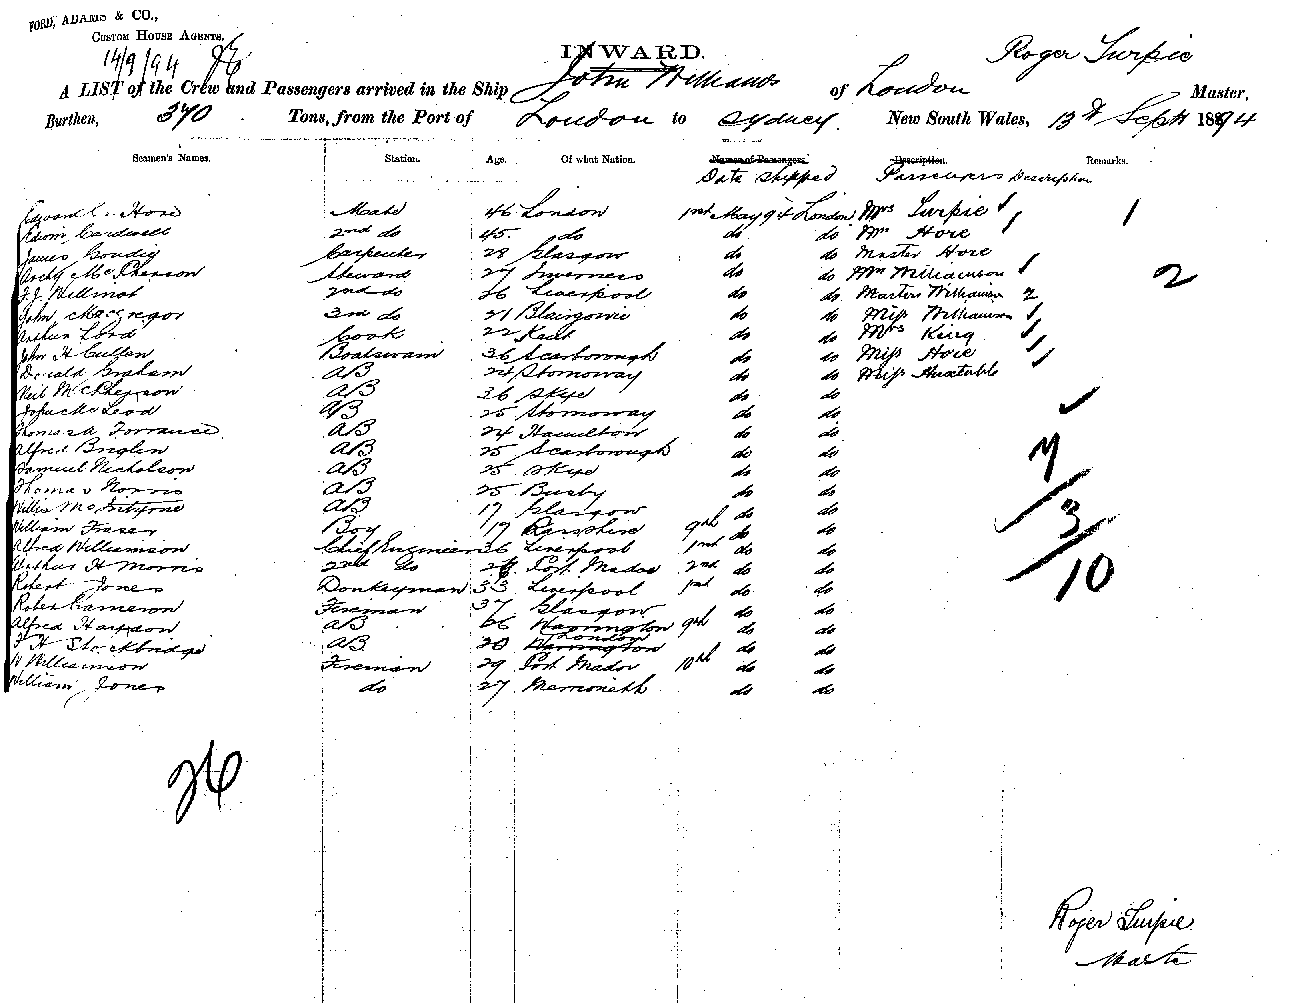 FORD, ADAMS & CO.,
CUSTOM HOUSE AGENTS.
14/9/94 26
INWARD.
Roger Turpie
A LIST of the Crew and Passengers arrived in the Ship John Williams of London Master,
Burthen, 370 Tons, from the Port of London to Sydney. New South Wales, 13th Sept 1894
Seamen's Names. Station. Age. Of what Nation. Names of Passengers Description. Remarks.
Date Shipped Passengers Description
Edward C. Hore Mate 46 London 1st May 94 London Mrs Turpie 1
Edwin Cardwell 2nd do 45. do do do Mrs Hore
James Goudig Carpenter 28 Glasgow do do Master Hore
Archd McPherson Steward 27 Inverness do do Mrs Williamson 2
F. J. Willmot 2nd do 26 Liverpool do do Masters Williamson 2
John MacGregor 3rd do 21 Blairgowrie do do Miss Williamson
Arthur Lord Cook 22 Kent do do Mrs King
John H Cullen Boatswain 36 Scarborough do do Miss Hore
Donald Graham AB 24 Stornoway do do Miss Huxtable
Neil McPherson AB 26 Skye do do
John McLeod AB 25 Stornoway do do
Thomas Torrance AB 24 Hamilton do do
Alfred AB 25 Scarborough do do
Samuel Nicholson AB 25 Skye do do
Thomas Norris AB 25 Busby do do
Willie AB 17 Glasgow do do
William Fraser Boy 17 9th do do
Alfred Williamson Chief Engineer 36 Liverpool 1st do do
Arthur H Morris 2nd do Port Mador 2nd do do
Robert Jones Donkeyman 33 Liverpool 1st do do
Robert Cameron Fireman 37 Glasgow do do
Alfred AB 26 Warrington 9th do do
F H Stockbridge AB 20 London Warrington do do
W Williamson Fireman 29 Port Mador 10th do do
William Jones do 27 do do
7
3
10
26
Roger Turpie
Master